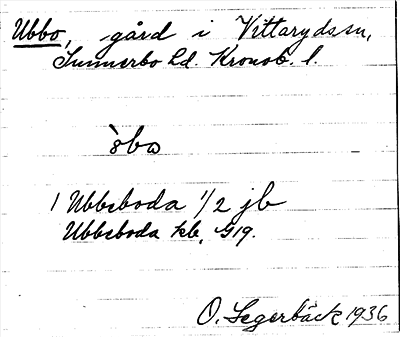 Ubbo, gård i Vittarydssn,
Sunnerbo hd. Kronob. l.
`obo
1 Ubbeboda 1/2 jb
Ubbeboda kb, G19.
O. Segerbäck 1936